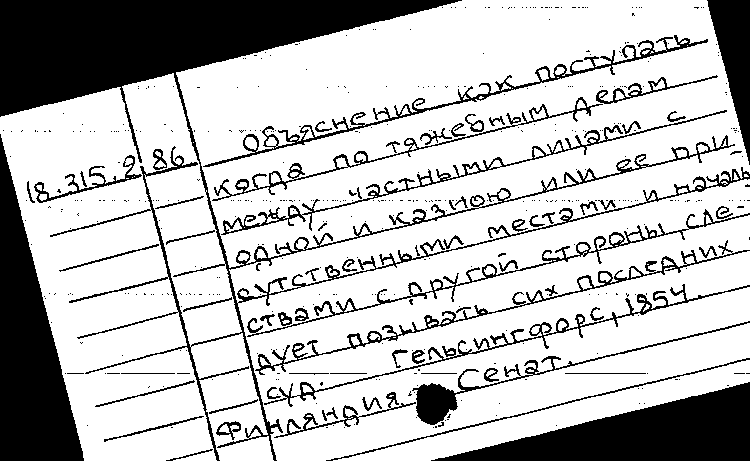 18.315.2.86
Объяснение как поступать
когда по тяжебным делам
между частными лицами с
одной и казною или ее при-
сутственными местами и началь
ствами с другой стороны, сле-
дует позывать сих последних
суд. Гельсингфорс, 1854.
Финляндия Сенат.